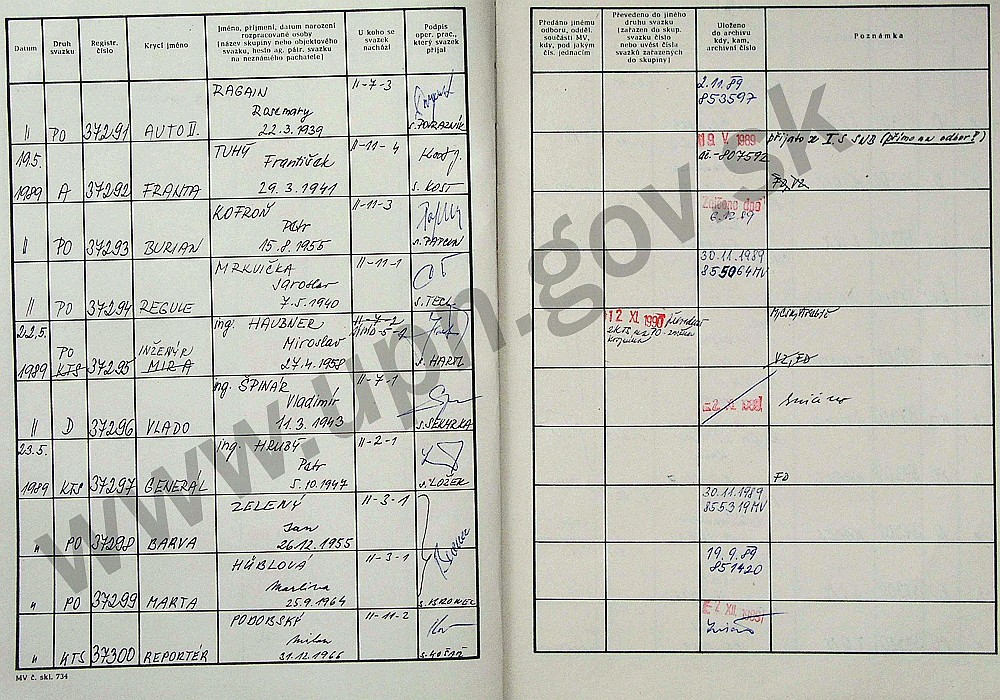 Datum
Druh svazku
Registr. číslo
Krycí jméno
Jméno, příjmení, datum narození
rozpracované osoby
[název skupiny nebo objektového
svazku, heslo ag. pátr. svazku
na neznámého pachatele]
U koho se
svazek
nachází
Podpis
oper. prac.,
který svazek
přijal
Předáno jinému
odboru, odděl.
součásti MV,
kdy, pod jakým
čís. jednacím
Převedeno do jiného
druhu svazku
[zařazen do skup.
svazku číslo
nebo uvést čísla
svazků zařazených
do skupiny]
Uloženo
do archivu
kdy, kam,
archivní číslo
Poznámka
RAGAIN II-7-3 2.11.89
Rosemary 853597
II PO 37291 AUTO II. 22.3.1939 s. POVRAZNÍK
19.5. TUHÝ II-11-4 19. V. 1989 přijato z I. S SNB (přímo na odbor I)
František ač.-807592
1989 A 37292 FRANTA 29.3.1941 s. KOST
KOFROŇ II-11-3 Zničeno dne
Petr 6.12.89
II PO 37293 BURIAN 15.8.1955
MRKVIČKA II-11-1 30.11.1989
Jaroslav 855064 MV
II PO 37294 REGULE 7.5.1940 s. TECL
22.5. ing. HAUBNER II-7-2 12. XI. 1990
PO INŽENÝR Miroslav
1989 KTS 37295 MIRA 27.4.1958 s. HARTL VZ, FD
ing. ŠPINAR II-7-1
Vladimír
II D 37296 VLADO 11.3.1943 s. SEKYRKA
23.5. ing. HRUBÝ II-2-1
Petr
1989 KTS 37297 GENERÁL 5.10.1947 s. LOŽEK FD
ZELENÝ II-3-1 30.11.1989
Jan 855319 MV
" PO 37298 BARVA 26.12.1955
HŮBLOVÁ II-3-1 19.9.89
Martina 851420
" PO 37299 MARTA 25.9.1964 s. BRONEC
PODOBSKÝ II-11-2
Milan
" KTS 37300 REPORTÉR 31.12.1966
MV č. skl. 734
www.upn.gov.sk